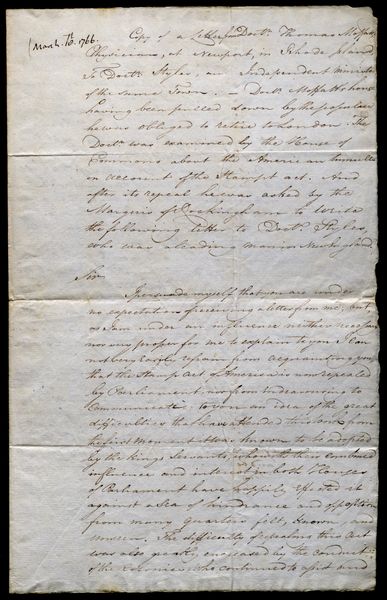 March 18. 1766.
Copy of a Letter from Doctr. Thomas Moffatt,
Physician, at Newport, in Rhode Island
To Doctr. Styles, an Independent minister
of the same Town. — Doctr. Moffatt's house
having been pulled down by the populace
he was obliged to retire to London. The
Doctr. was examined by the House of
Commons about the American tumults
on account of the Stampt act. And
after its repeal he was asked by the
Marquis of Rockingham to write
the following letter to Doctr. Styles,
who was a leading man in New England.
Sir
I persuade myself that you are under
no expectation of receiving a letter from me; but,
as I am under an influence neither necessary
nor very proper for me to explain to you I can
not very easily refrain from acquainting you
that the Stamp Act of America is now repealed
by Parliament, nor from endeavouring to
communicate to you an idea of the great
difficulties that have attended this work from
the first moment it was known to be adopted
by the Kings Servants, who with their combined
influence and interest in both Houses
of Parliament have happily effected it
against a Sea of hindrance and opposition
from many quarters felt, known, and
unseen. The difficulty of repealing this Act
was also greatly encreased by the conduct
of the Colonies, who continued to insult and